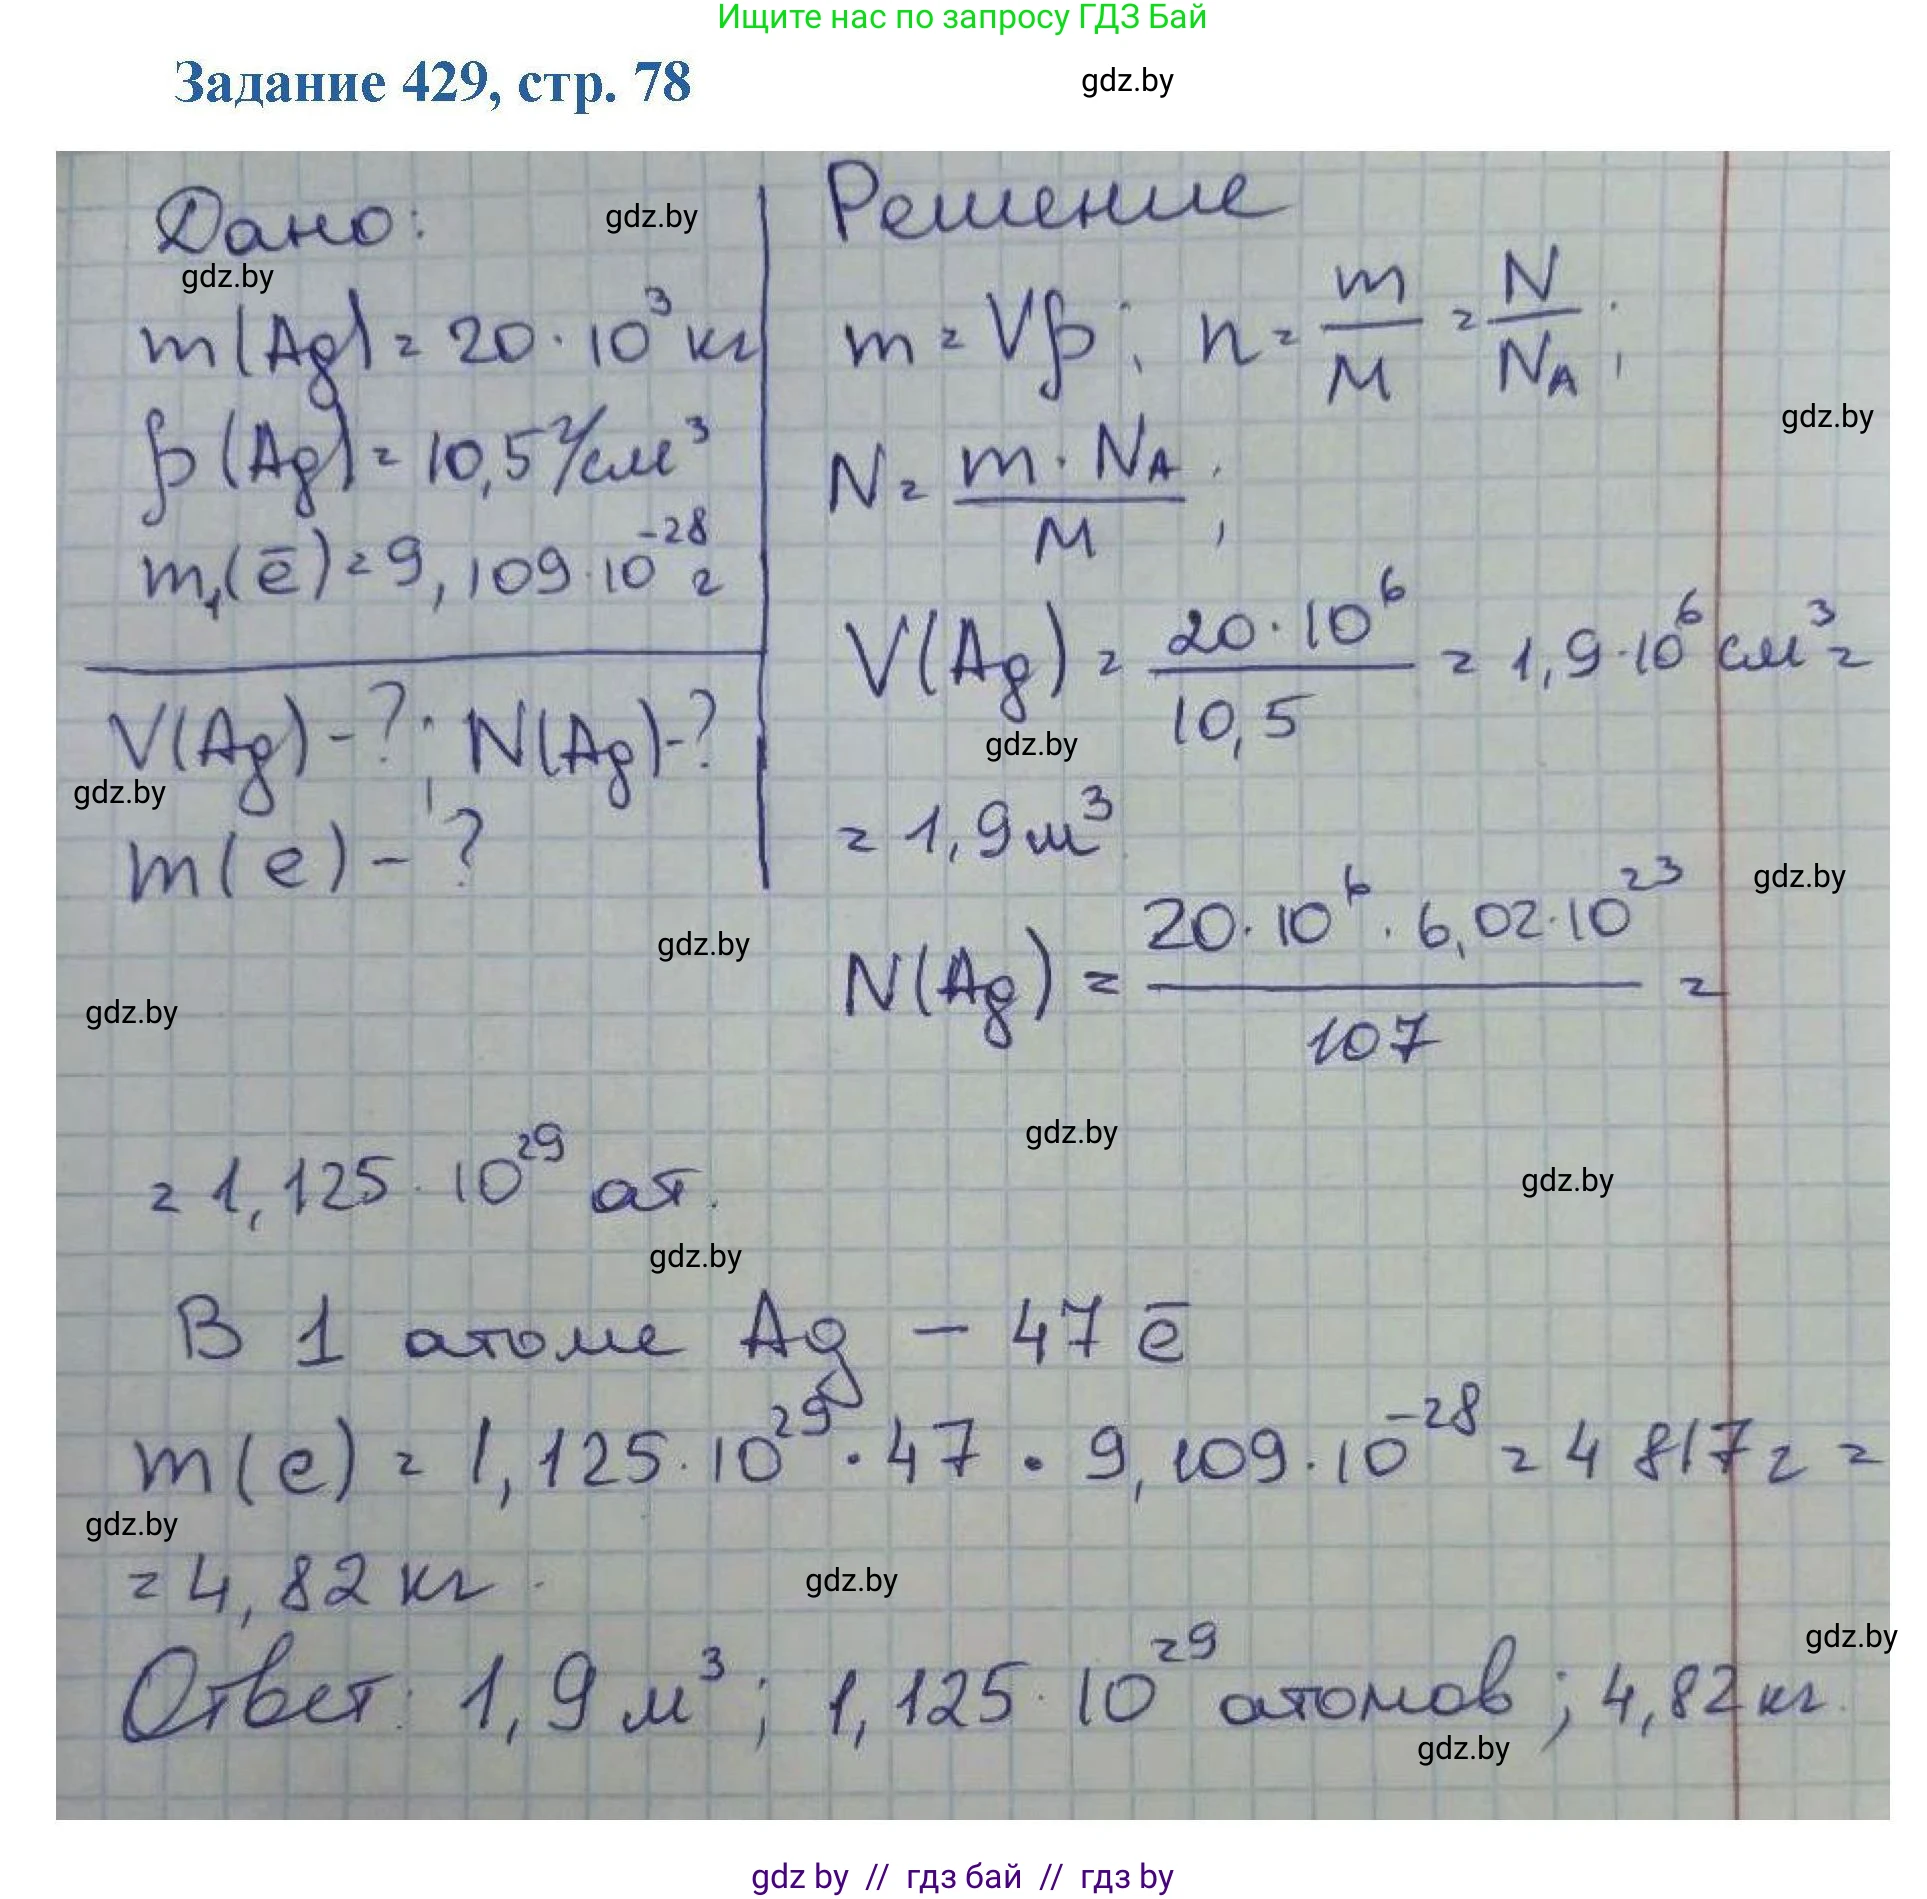 Ищите нас по запросу ГДЗ Бай
Задание 429, стр. 78
gdz.by
Дано:
gdz.by
gdz.by
m(Ag) = 20 · 10³ кг
ρ(Ag) = 10,5 г/см³
m₁(ē) = 9,109 · 10⁻²⁸ г
V(Ag) - ?; N(Ag) - ?
gdz.by
m(e) - ?
Решение
m = Vρ; n = m/M = N/N_A;
gdz.by
N = m · N_A / M;
V(Ag) = 20 · 10⁶ / 10,5 = 1,9 · 10⁶ см³ =
gdz.by
= 1,9 м³
gdz.by
gdz.by
N(Ag) = 20 · 10⁶ · 6,02 · 10²³ / 107 =
gdz.by
gdz.by
= 1,125 · 10²⁹ ат.
gdz.by
gdz.by
В 1 атоме Ag – 47 ē
m(e) = 1,125 · 10²⁹ · 47 · 9,109 · 10⁻²⁸ = 4 817 г =
gdz.by
= 4,82 кг.
gdz.by
gdz.by
Ответ: 1,9 м³; 1,125 · 10²⁹ атомов; 4,82 кг.
gdz.by
gdz by // гдз бай // гдз by